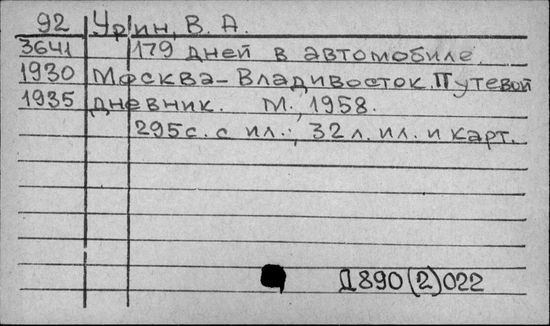 92 Урин, В. А.
3641 179 дней в автомобиле.
1930 Москва-Владивосток. Путевой
1935 дневник. М., 1958.
295с. с ил.; 32 л. ил. и карт.
Д890(2)022